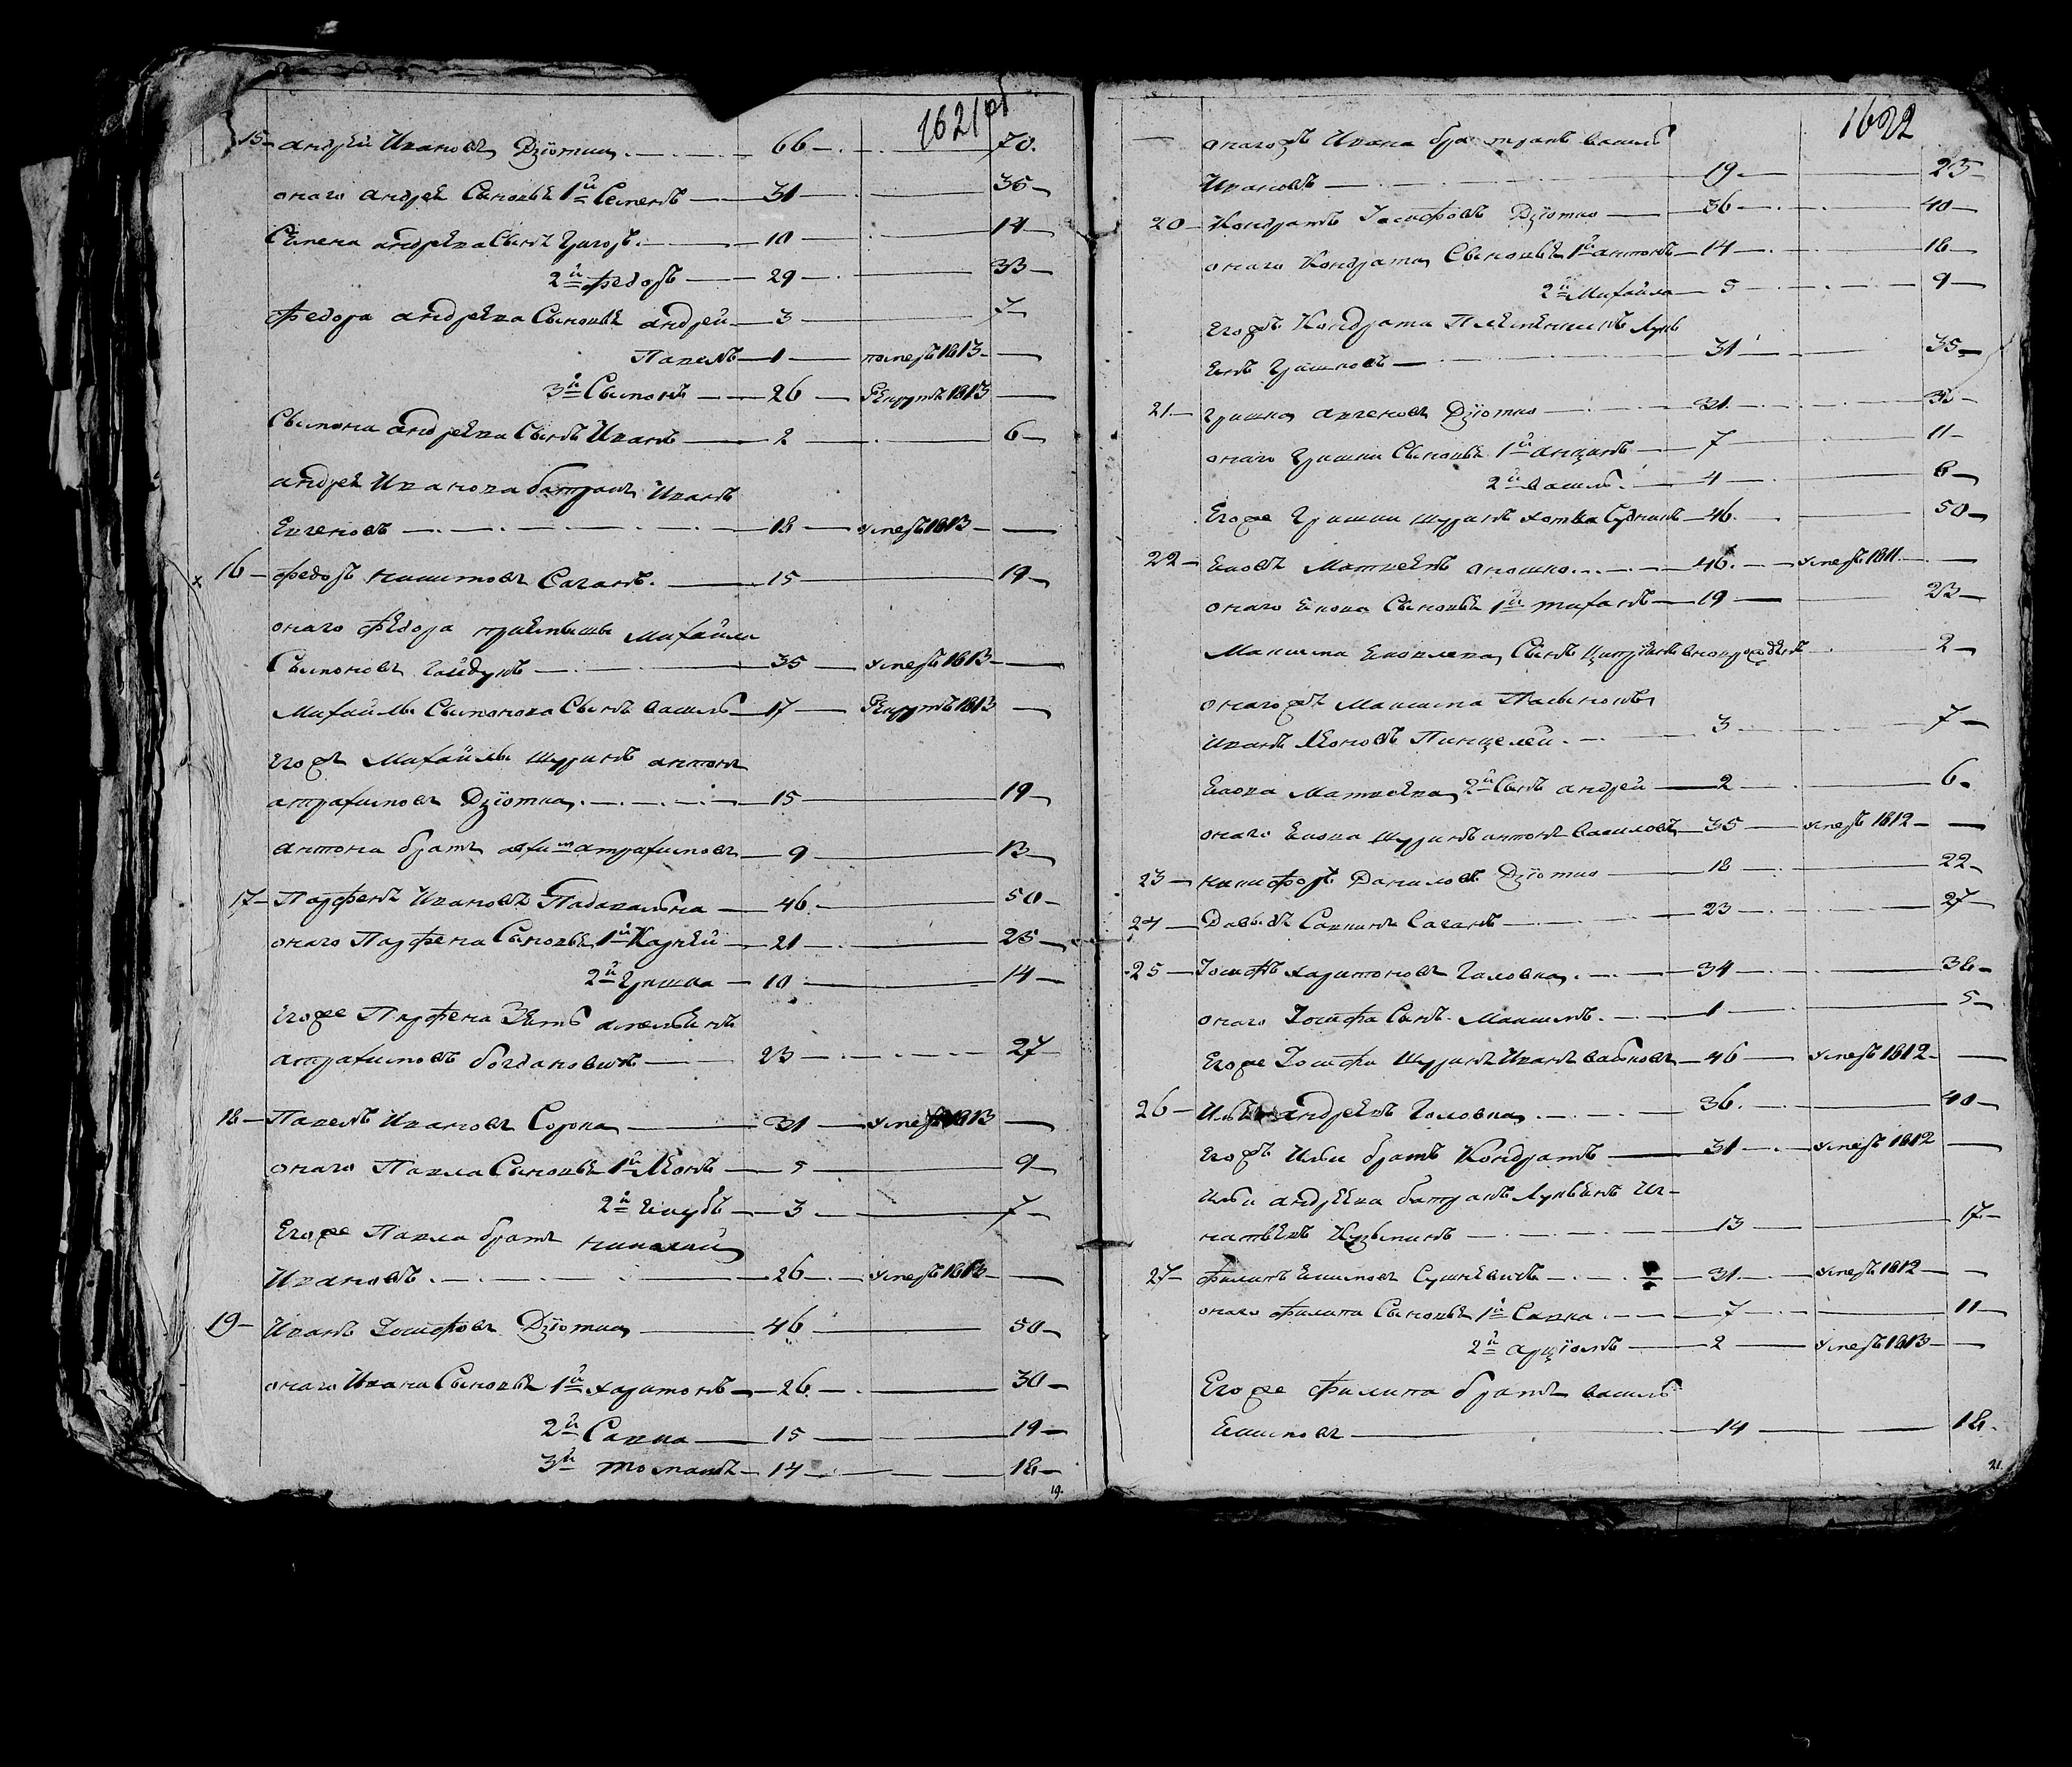 1621 об
15 — андрей Ивановъ Дзіотка — 66 — 70.
онаго андрея Сыновья 1й Семенъ — 31 — 35
Семена андреева Сынъ Григоръ — 10 — 14
2й федоръ — 29 — 33
Федора андреева Сыновья андрей — 3 — 7
Павелъ — 1 — померъ 1813 —
3й Сымонъ — 26 — Рекрутъ 1813 —
Сымона андреева Сынъ Иванъ — 2 — 6
андрея Иванова батракъ Иванъ
Евгеновъ — 18 — умеръ 1813 —
16 — федоръ Никитовъ Саганъ — 15 — 19
онаго Федора приемышъ Михайла
Сымоновъ Гайдукъ — 35 — умеръ 1813 —
Михайлы Сымонова Сынъ Василь — 17 — Рекрутъ 1813 —
Егожъ Михайлы Шуринъ антонъ
атрахимовъ Дзіотка — 15 — 19
антона братъ атрахимовъ — 9 — 13
17 — Парфенъ Ивановъ — 46 — 50
онаго Парфена Сыновья 1й Карней — 21 — 25
2й Гришка — 10 — 14
Егоже Парфена Зять амельянъ
атрахимовъ богдановичъ — 23 — 27
18 — Павелъ Ивановъ Сорока — 31 — умеръ 1813 —
онаго Павла Сыновья 1й Леонъ — 5 — 9
2й Якубъ — 3 — 7
Егоже Павла братъ Николай
Ивановъ — 26 — умеръ 1813 —
19 — Иванъ Іосифовъ Дзіотка — 46 — 50
онаго Ивана Сыновья 1й харитонъ — 26 — 30
2й Савка — 15 — 19
3й томашъ — 14 — 18
19.
1622
— онагожъ Ивана батракъ Василь
Ивановъ — 19 — 23
20 — Кондратъ Іосифовъ Дзіотко — 36 — 40
онаго Кондрата Сыновья 1й антонъ — 14 — 18
2й Михайла — 5 — 9
Егожъ Кондрата Племянникъ Лукь
янъ Гришковъ — 31 — 35
21 — Гришка авгеновъ Дзіотко — 31 — 35
онаго Гришки Сыновья 1й — 7 — 11
2й Василь — 4 — 8
Егоже Гришки шуринъ хотка — 46 — 50
22 — Яковъ Матвеевъ — 46 — умеръ 1811 —
онаго Якова Сыновья 1й — 19 — 23
Максима Яковлева Сынъ — 2
онагожъ Максима Пасынокъ
Иванъ Леоновъ Панцелей — 3 — 7
Якова Матвеева 2й Сынъ андрей — 2 — 6
онаго Якова шуринъ антонъ Василовъ — 35 — умеръ 1812 —
23 — никифоръ Даниловъ Дзіотко — 18 — 22
24 — Давыдъ Савкинъ Саганъ — 23 — 27
25 — Іосифъ харитоновъ Головка — 34 — 38
онаго Іосифа Сынъ Максимъ — 1 — 5
Егоже Іосифа Шуринъ Иванъ — 46 — умеръ 1812 —
26 — Илья андреевъ Головка — 36 — 40
Егожъ Ильи братъ Кондратъ — 31 — умеръ 1812 —
Ильи андреева батракъ Лукьянъ Иг-
натьевъ Кузьминъ — 13 — 17
27 — Филипъ Якимовъ Сушкевичъ — 31 — умеръ 1812 —
онаго Филипа Сыновья 1й Савка — 7 — 11
2й арціомъ — 2 — умеръ 1813 —
Егоже Филипа братъ Василь
Якимовъ — 14 — 18.
21.